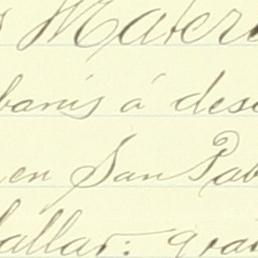 Mater
banis á des
en San Pab
allar: gra